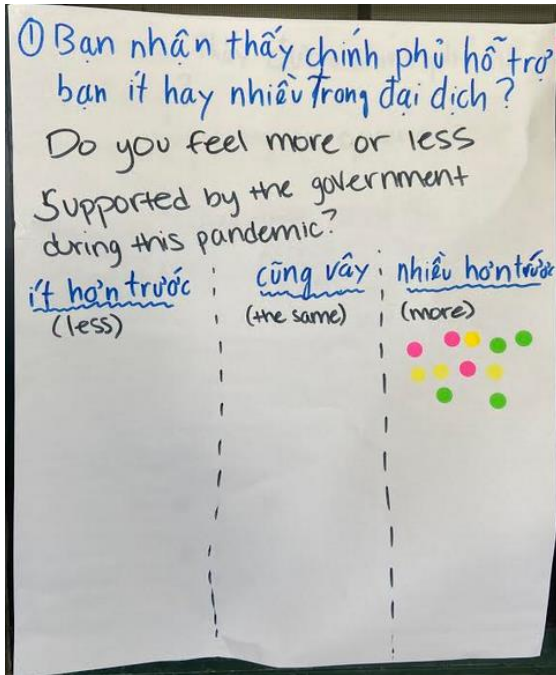 ① Bạn nhận thấy chính phủ hỗ trợ
bạn ít hay nhiều trong đại dịch?
Do you feel more or less
Supported by the government
during this pandemic?
ít hơn trước
(less)
cũng vây
(the same)
nhiều hơn trước
(more)